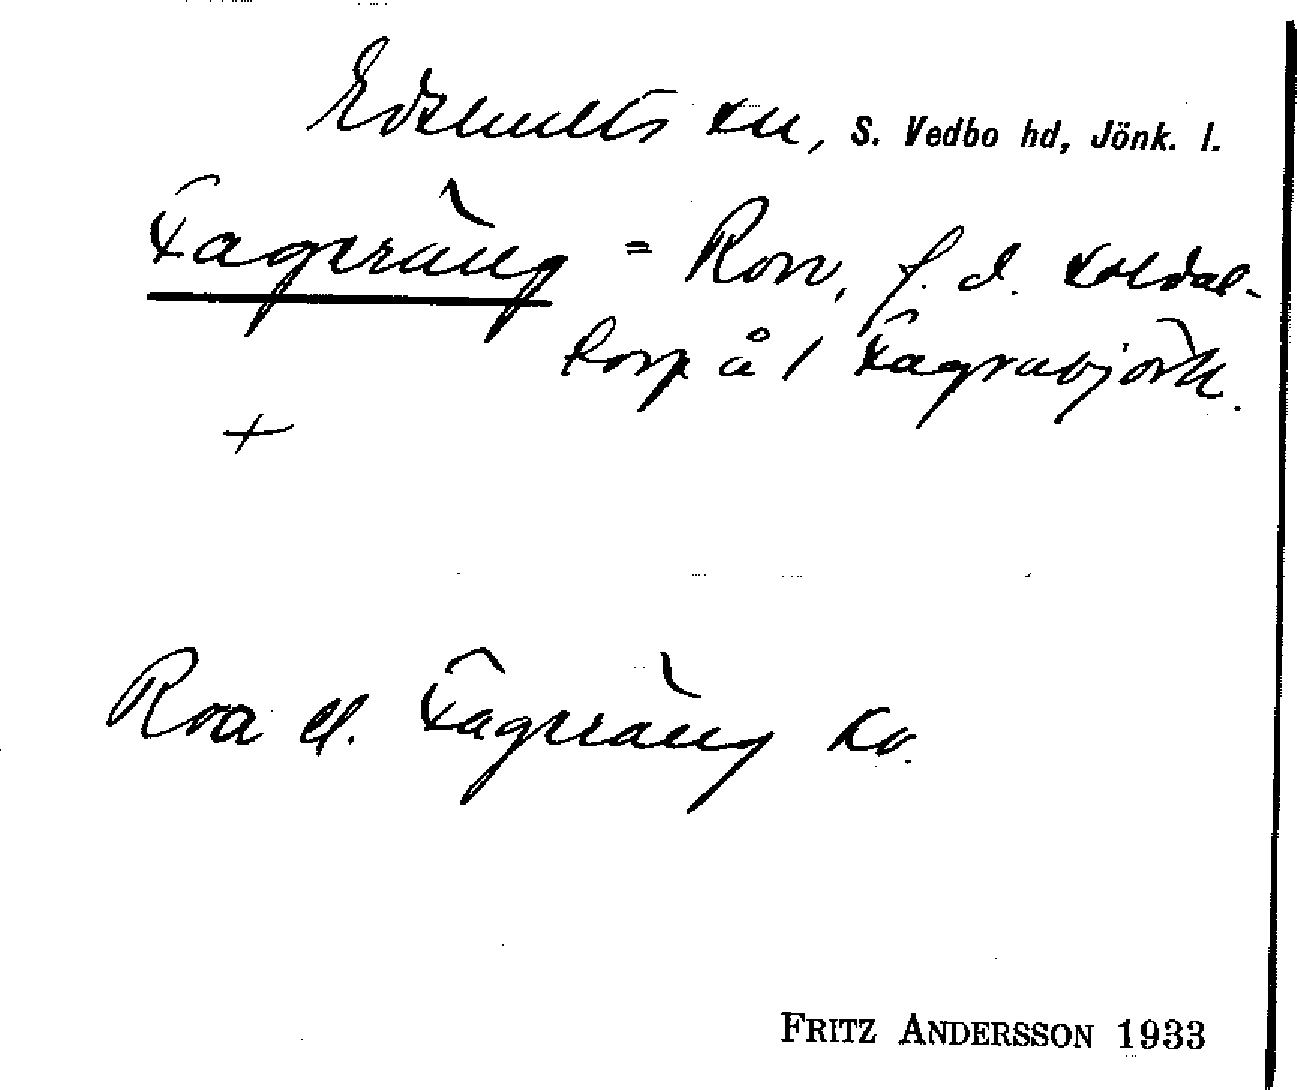 Edshults sn, S. Vedbo hd, Jönk. l.
Fageräng = Ron, f. d. soldat-
torp å 1 Fagrabjörk.
+
Roa el. Fageräng Ko.
FRITZ ANDERSSON 1933